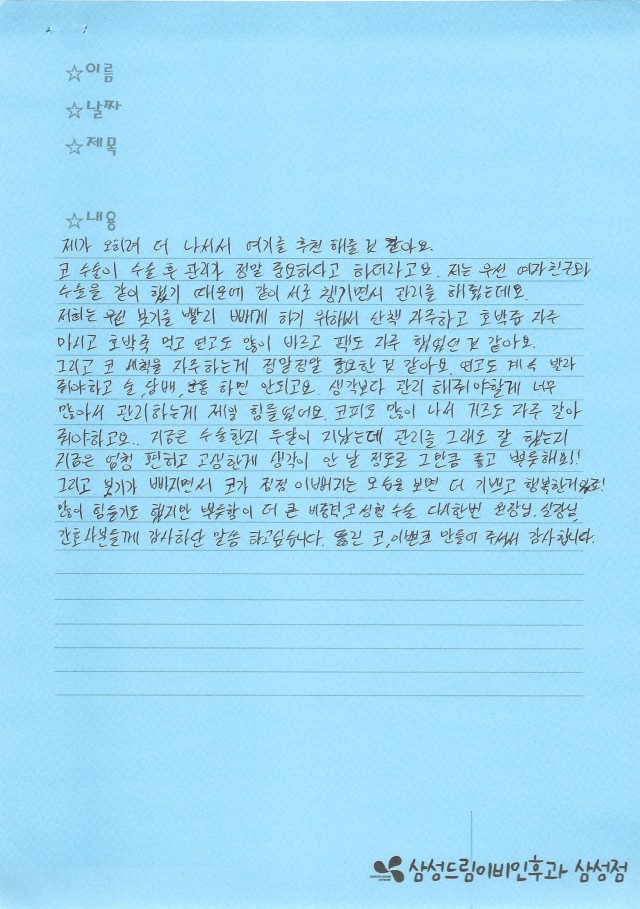 ☆이름
☆날짜
☆제목
☆내용
제가 오히려 더 나서서 여기를 추천 해줄 것 같아요.
코 수술이 수술 후 관리가 정말 중요하다고 하더라고요. 저는 우선 여자친구와
수술을 같이 했기 때문에 같이 서로 챙기면서 관리를 해줬는데요.
저희는 우선 붓기를 빨리 빼게 하기 위해서 산책 자주하고 호박즙 자주
마시고 호박죽 먹고 연고도 많이 바르고 팩도 자주 했었던 것 같아요.
그리고 코 세척을 자주하는게 정말정말 중요한 것 같아요. 연고도 계속 발라
줘야하고 술,담배,운동 하면 안되고요. 생각보다 관리 해줘야할게 너무
많아서 관리하는게 제일 힘들었어요. 코피도 많이 나서 거즈도 자주 갈아
줘야하고요.. 지금은 수술한지 두달이 지났는데 관리를 그래도 잘 했는지
지금은 엄청 편하고 고생한게 생각이 안 날 정도로 그만큼 좋고 뿌듯해요!!
그리고 붓기가 빠지면서 코가 점점 이뻐지는 모습을 보면 더 기쁘고 행복한거 있죠!
많이 힘들기도 했지만 뿌듯함이 더 큰 비중격,코성형 수술 다시한번 원장님, 실장님,
간호사분들께 감사하단 말씀 하고싶습니다. 뚫린 코,이쁜코 만들어 주셔서 감사합니다.
삼성드림이비인후과 삼성점